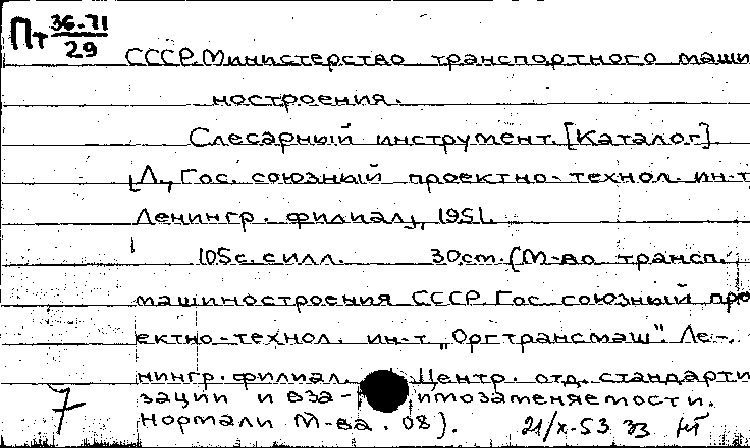 Пт 36-71
29
СССР. Министерство транспортного маши
ностроения.
Слесарный инструмент. [Каталог].
Л., Гос. союзный проектно-технол. ин-т
Ленингр. филиал, 1951.
105с. с илл. 30см. (М-во трансп.
машиностроения СССР. Гос. союзный про
ектно-технол. ин-т „Оргтрансмаш". Ле-
нингр. филиал. Центр. отд. стандарти
зации и вза- имозаменяемости.
7 Нормали М-ва. 08).
21/X-53